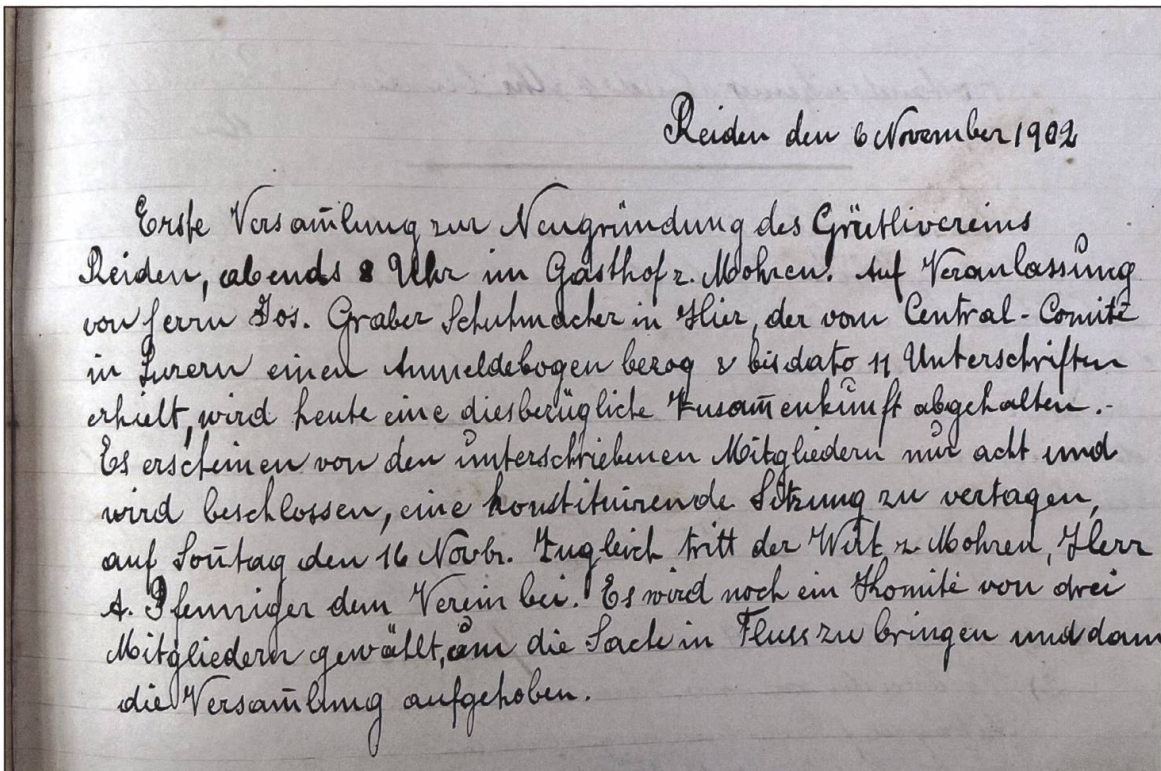 Reiden den 6 November 1902
Erste Versam̄lung zur Neugründung des Grütlivereins
Reiden, abends 8 Uhr im Gasthof z. Mohren. Auf Veranlassung
von Herrn Jos. Graber Schuhmacher in Hier, der vom Central-Comité
in Luzern einen Anmeldebogen bezog & bis dato 11 Unterschriften
erhielt, wird heute eine diesbezügliche Zusam̄enkunft abgehalten.-
Es erscheinen von den unterschriebenen Mitgliedern nur acht und
wird beschlossen, eine konstituirende Sitzung zu vertagen,
auf Son̄tag den 16 Novbr. Zugleich tritt der Wirt z. Mohren, Herr
A. Pfenniger dem Verein bei. Es wird noch ein Komité von drei
Mitgliedern gewählt, um die Sache in Fluss zu bringen und dann
die Versam̄lung aufgehoben.